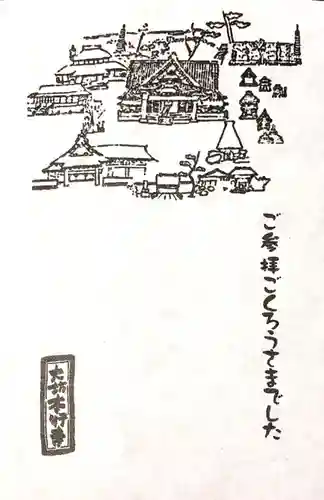 ご参拝ごくろうさまでした
大坊本行寺